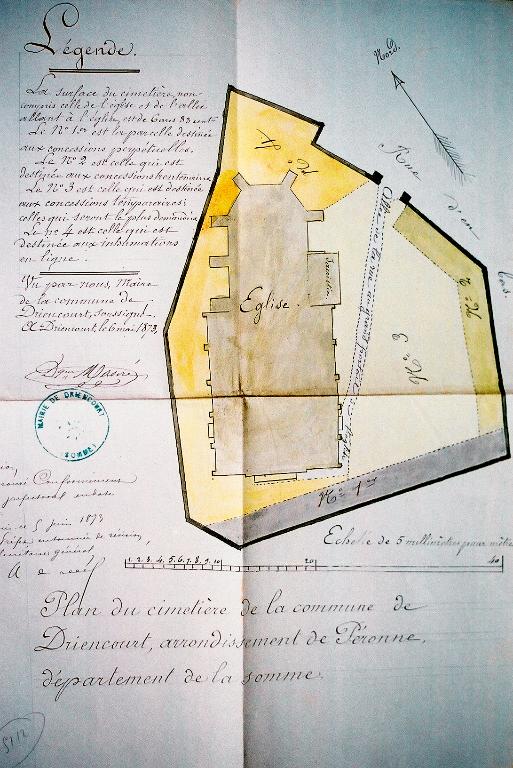 Légende.
La surface du cimetière, non-
compris celle de l'église et de l'allée
allant à l'église, est de 6 ares 83 cent.
Le N° 1er est la parcelle destinée
aux concessions perpétuelles.
Le N° 2 est celle qui est
destinée aux concessions trentenaires.
Le N° 3 est celle qui est destinée
aux concessions temporaires;
celles qui seront le plus demandées.
Le n° 4 est celle qui est
destinée aux inhumations
en ligne.
Vu par nous, Maire
de la commune de
Driencourt, soussigné.
A Driencourt, le 6 mai 1873.
MAIRIE DE DRIENCOURT
(SOMME)
5 juin 1873
général
Nord.
Rue d'en bas.
N° 4
Eglise.
Sacristie
Allée de la rue au grand portail de l'église
N° 2
N° 3
N° 1er
Echelle de 5 millimètres pour mètre
1 2 3 4 5 6 7 8 9 10 20 40
Plan du cimetière de la commune de
Driencourt, arrondissement de Péronne,
département de la somme.